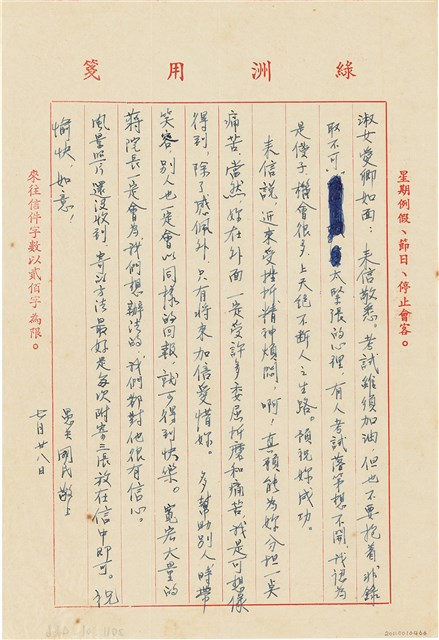 綠洲用箋
星期例假、節日、停止會客。
淑女愛卿如面:來信敬悉。考試雖須加油,但也不要抱着非錄
取不可太緊張的心理,有人考試落第想不開,我認為
是傻子機會很多,上天絕不斷人之生路。預祝妳成功。
來信說,近來受挫折精神煩悶,啊!真願能為妳分担一些
痛苦,當然,妳在外面一定受許多委屈折磨和痛苦,我是可想像
得到,除了感佩外,只有將來加倍愛惜妳。多幫助別人,時帶
笑容,別人也一定會以同樣的回報,就可得到快樂。寬宏大量的
蔣院長一定會為我們想辦法的,我們都對他很有信心。
風景照片還沒收到,寄的方法最好是每次附寄三張放在信中即可。祝
愉快 如意!
愚夫 國民 敬上
七月廿八日
來往信件字數以貳佰字為限。